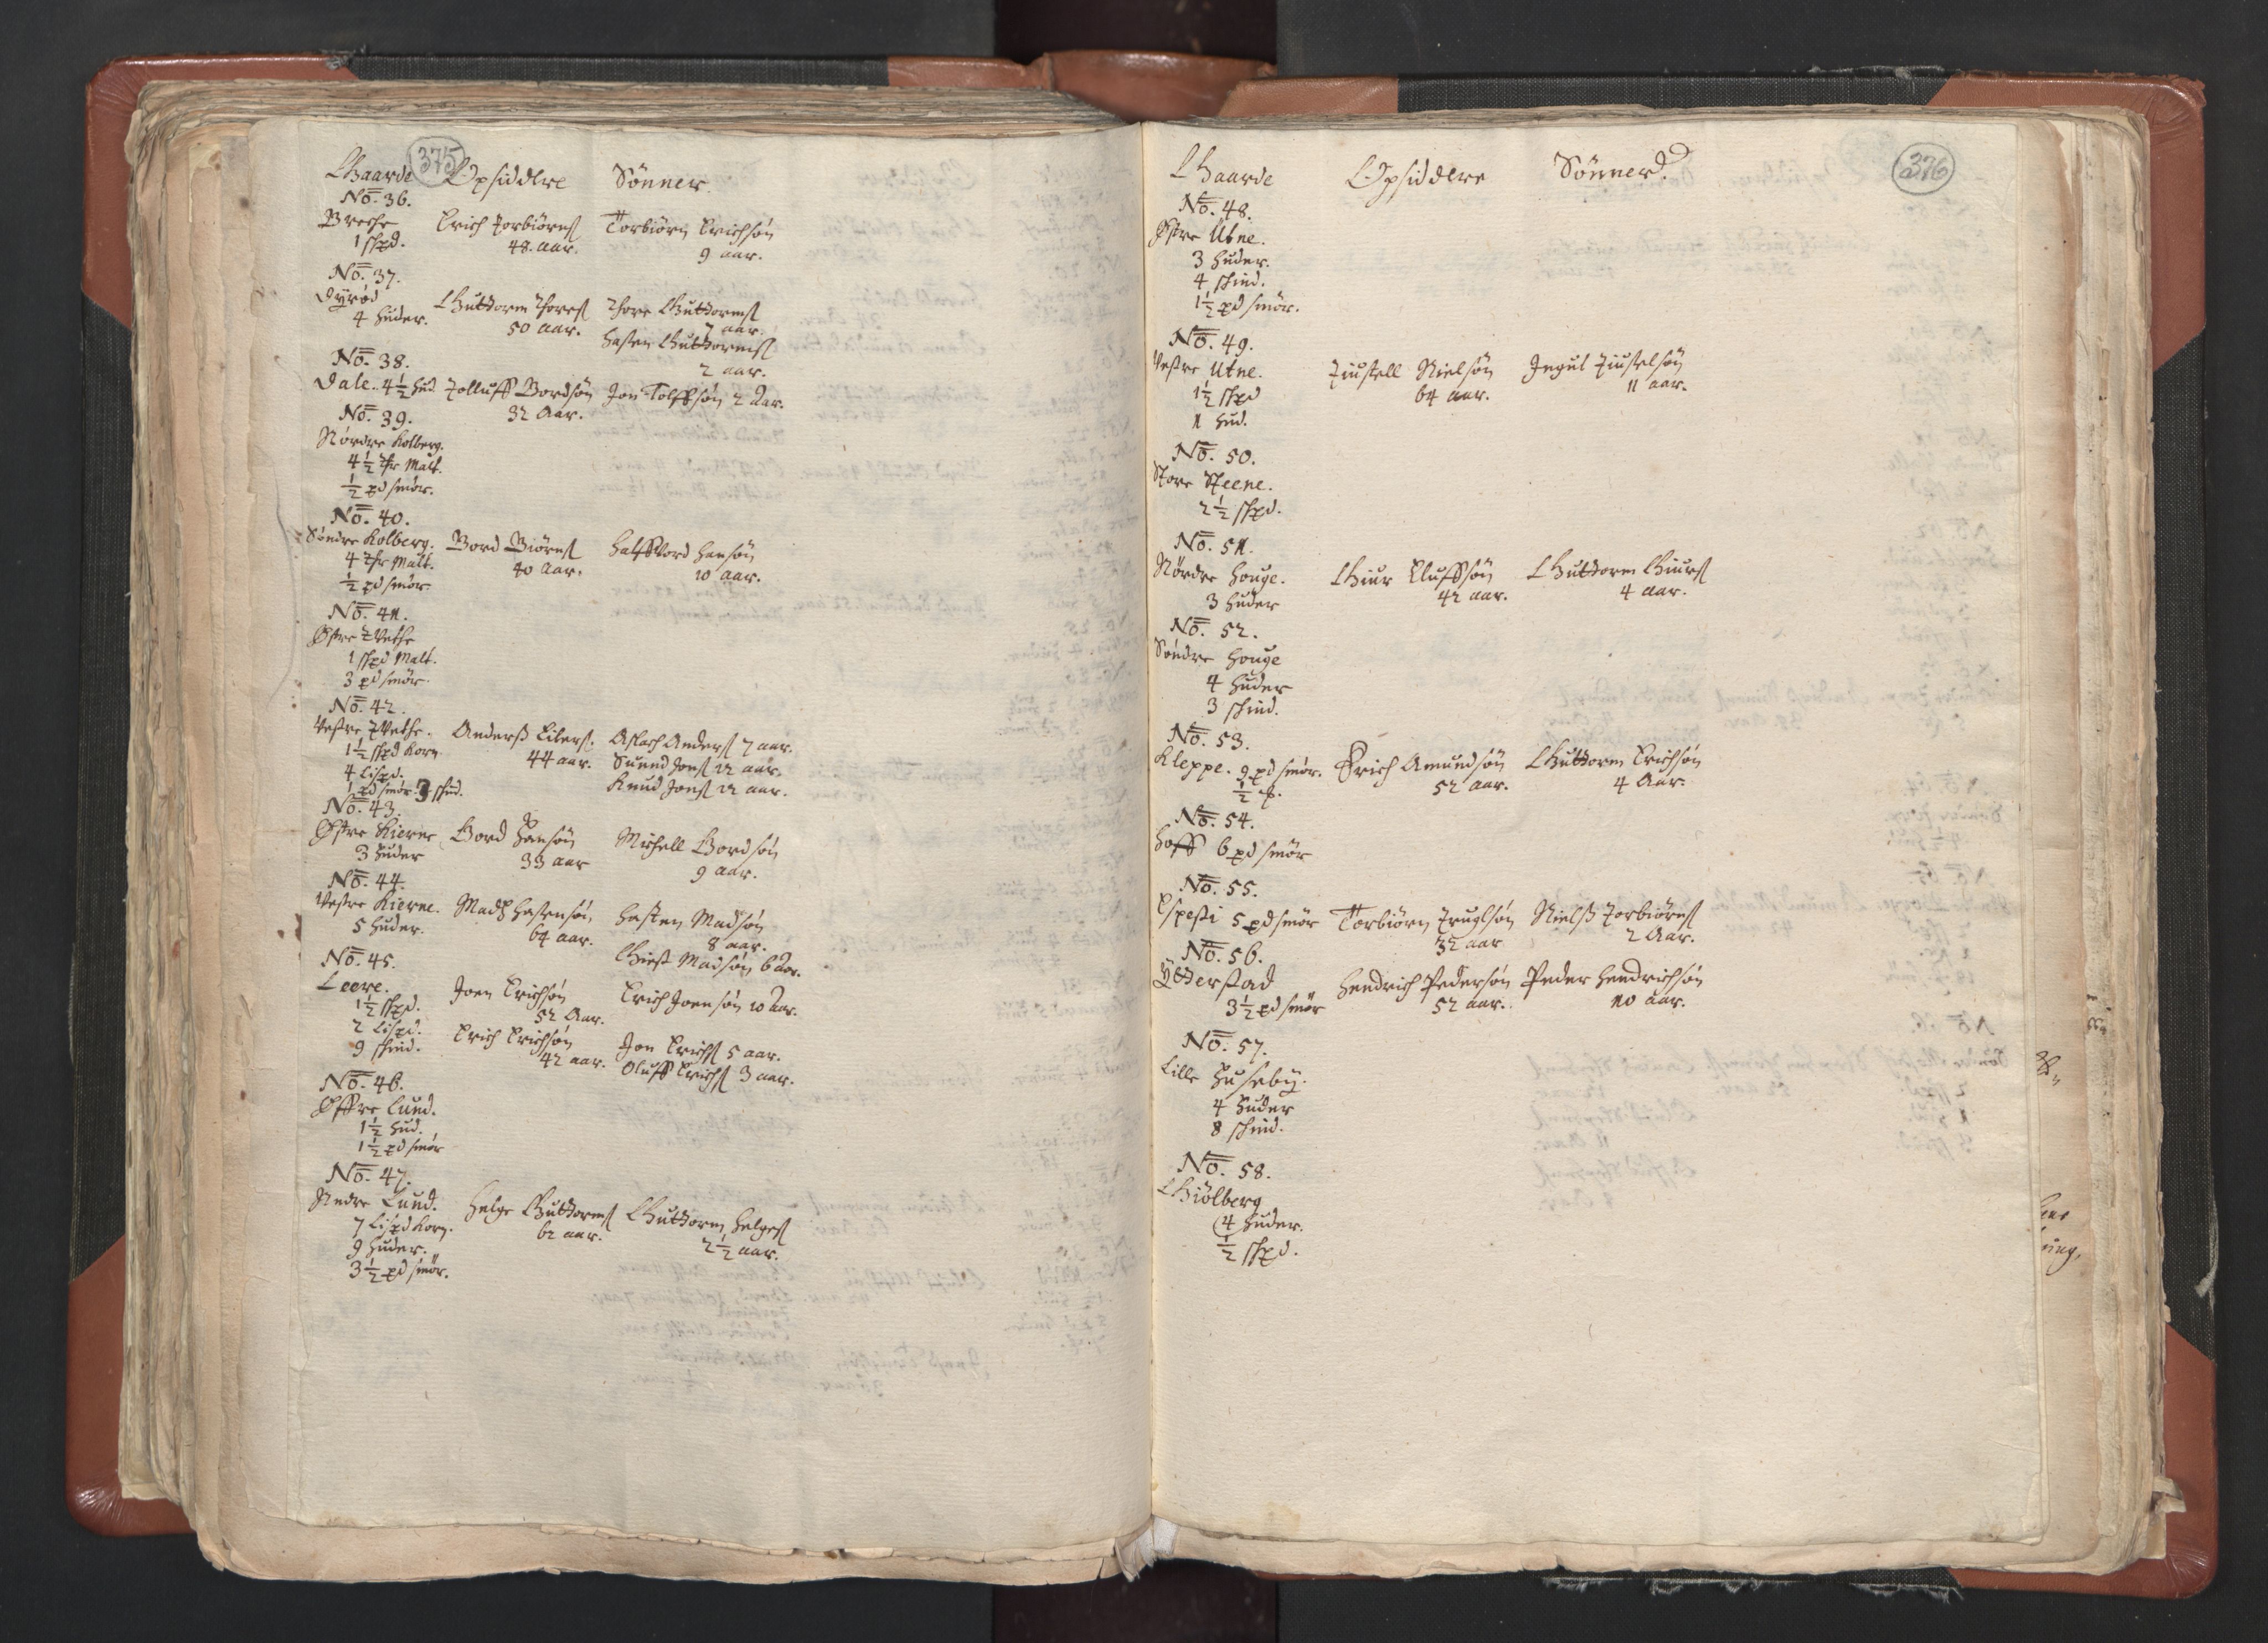 375
Gaarde Opsiddere Sønner.
No. 36.
Breche Erich Torbiørnß Torbiørn Erichsøn
1 skpd. 48. aar. 9 aar.
No. 37.
Dyrød Guttorm Thoresß Thore Guttormß
4 huder. 50 aar. 7 aar.
Hasten Guttormß
No. 38. 2 aar.
Dale. 4½ hud Tolluff Bordsøn Jon Tolffsøn 2 Aar.
No. 39. 32 Aar.
Nordre Kolberg.
4½ Malt.
½ pd smør.
No. 40.
Søndre Kolberg. Bord Biørnß Halffvord Hansøn
4 Malt. 40 Aar. 10 aar.
½ pd smør.
No. 41.
Østre Tvethe
1 skpd Malt.
3 pd smør.
No. 42.
Vestre Tvethe. Anderß Eilerß. Aslach Anderß 7 aar.
1½ skpd Korn 44 aar. Suend Jonß 12 aar.
4 Lispd. Knud Jonß 12 aar.
1 pd smør 3 skind.
No. 43.
Østre Kierne Bord Hansøn Michell Bordsøn
3 huder 33 aar 9 aar.
No. 44.
Vestre Kierne. Madß Hastensøn Hasten Madsøn
5 huder. 64 aar. 8 aar.
No. 45. Giest Madsøn 6 Aar.
Leere. Joen Erichsøn Erich Joensøn 10 Aar.
1½ skpd. 52 Aar.
2 Lispd. Erich Erichsøn Jon Erichß 5 aar.
9 skind. 42 aar. Oluff Erichß 3 aar.
No. 46.
Øffre Lund.
1½ hud.
1½ pd smør
No. 47.
Nedre Lund. Helge Guttormß Guttorm Helgeß
7 Lispd Korn. 62 aar. 2½ aar.
9 huder.
3½ pd smør.
376
Gaarde Opsiddere Sønner.
No. 48.
Østre Utne.
3 huder.
4 skind.
1½ pd smør.
No. 49.
Vestre Utne. Tiustell Nielsøn Ingul Tiustelsøn
1½ skpd 64 aar. 11 aar.
1 hud.
No. 50.
Store Steene.
2½ skpd.
No. 51.
Nordre Houge. Giur Eluffsøn Guttorm Giurß
3 huder 42 aar. 4 aar.
No. 52.
Søndre Houge
4 huder
3 skind.
No. 53.
Kleppe. 9 pd smør. Erich Amundsøn Guttorm Erichsøn
½ 52 aar. 4 Aar.
No. 54.
Hoff 6 pd smør
No. 55.
Espesti 5 pd smør Torbiørn Truglsøn Nielß Torbiørnß
32 aar 2 Aar.
No. 56.
Ytterstad Hendrich Pedersøn Peder Hendrichsøn
3½ pd smør 52 aar. 10 aar.
No. 57.
Lille Huseby.
4 huder
8 skind.
No. 58.
Giölberg
4 huder.
½ skpd.